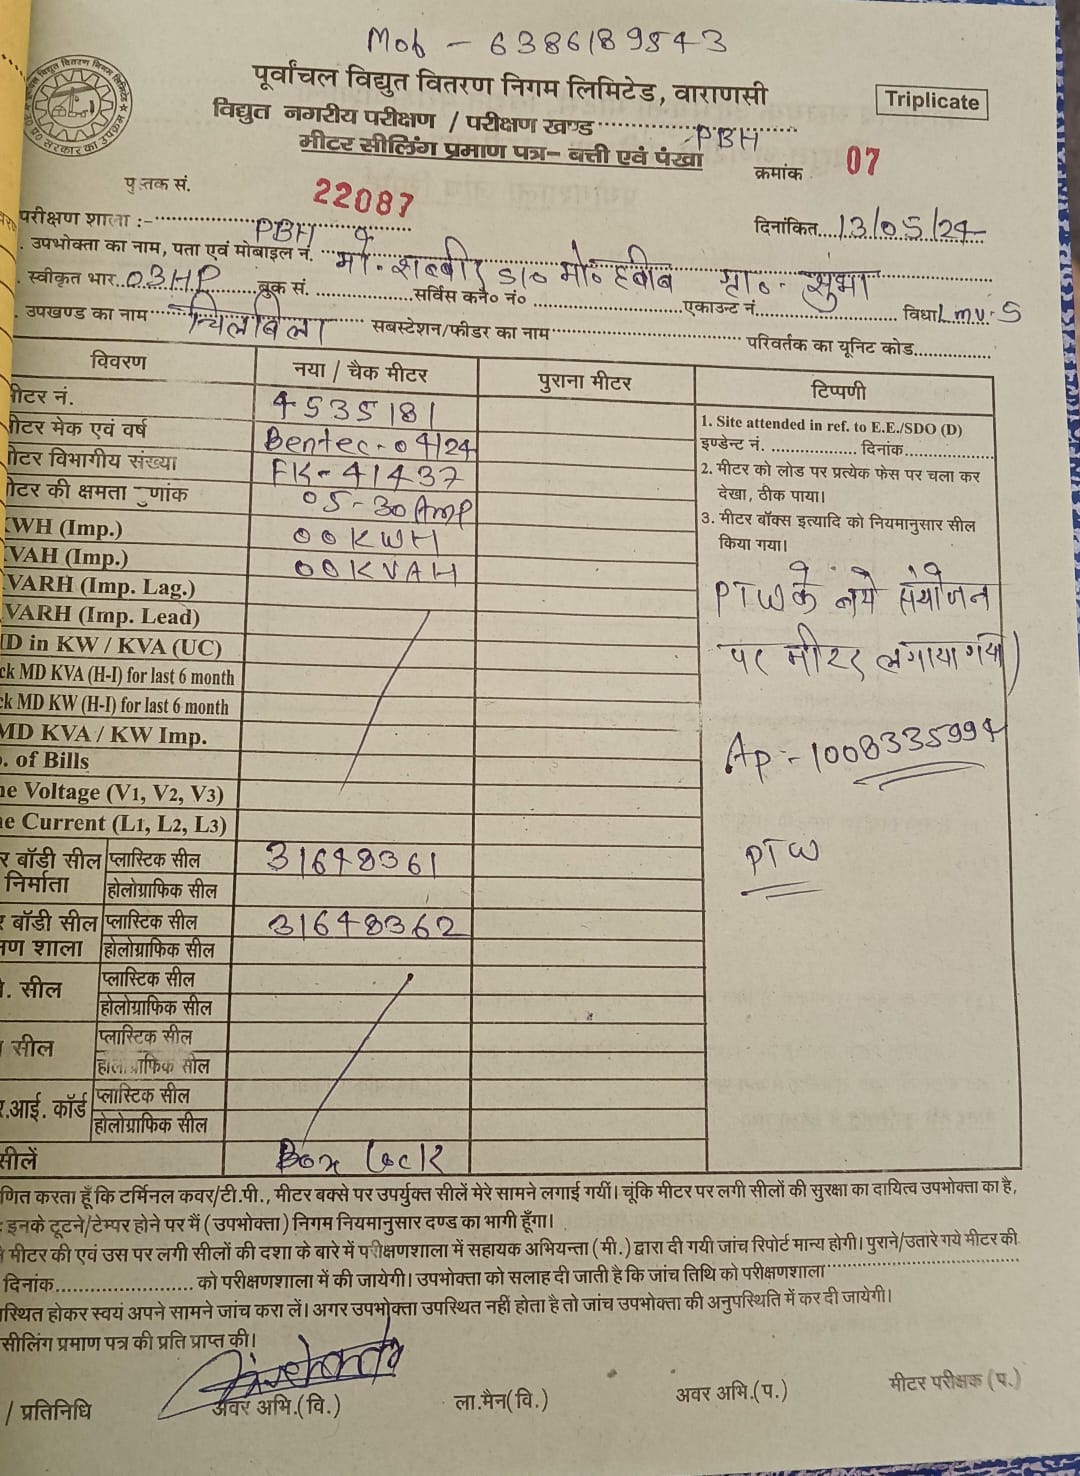 Mob - 6386189543
पूर्वांचल विद्युत वितरण निगम लिमिटेड, वाराणसी
Triplicate
विद्युत नगरीय परीक्षण / परीक्षण खण्ड PBH
मीटर सीलिंग प्रमाण पत्र- बत्ती एवं पंखा
क्रमांक 07
पुस्तक सं. 22087
परीक्षण शाला :- PBH
दिनांकित 13/05/24
उपभोक्ता का नाम, पता एवं मोबाइल नं. मो. शब्बीर S/० मो० हबीब ग्रा०- सुंभा
स्वीकृत भार 03HP बुक सं. सर्विस कनै० नं० एकाउन्ट नं. विधा Lmv-5
उपखण्ड का नाम चिलबिला सबस्टेशन/फीडर का नाम परिवर्तक का यूनिट कोड
विवरण नया / चैक मीटर पुराना मीटर टिप्पणी
ीटर नं. 4535181
ीटर मेक एवं वर्ष Bentec-04/24
ीटर विभागीय संख्या EK-41437
ीटर की क्षमता ुणांक 05-30 Amp
WH (Imp.) 00KWH
VAH (Imp.) 00KVAH
VARH (Imp. Lag.)
VARH (Imp. Lead)
D in KW / KVA (UC)
ck MD KVA (H-I) for last 6 month
ck MD KW (H-I) for last 6 month
MD KVA / KW Imp.
. of Bills
ne Voltage (V1, V2, V3)
ne Current (L1, L2, L3)
1. Site attended in ref. to E.E./SDO (D)
इण्डेन्ट नं. दिनांक
2. मीटर को लोड पर प्रत्येक फेस पर चला कर
देखा, ठीक पाया।
3. मीटर बॉक्स इत्यादि को नियमानुसार सील
किया गया।
PTW के नये संयोजन
पर मीटर लगाया गया)
Ap - 1008335994
PTW
र बॉडी सील प्लास्टिक सील 31648361
निर्माता होलोग्राफिक सील
र बॉडी सील प्लास्टिक सील 31648362
षण शाला होलोग्राफिक सील
. सील प्लास्टिक सील
होलोग्राफिक सील
सील प्लास्टिक सील
होलोग्राफिक सील
र.आई. कॉर्ड प्लास्टिक सील
होलोग्राफिक सील
सीलें Box Lock
णित करता हूँ कि टर्मिनल कवर/टी.पी., मीटर बक्से पर उपर्युक्त सीलें मेरे सामने लगाई गयीं। चूंकि मीटर पर लगी सीलों की सुरक्षा का दायित्व उपभोक्ता का है,
इनके टूटने/टेम्पर होने पर मैं (उपभोक्ता) निगम नियमानुसार दण्ड का भागी हूँगा।
मीटर की एवं उस पर लगी सीलों की दशा के बारे में परीक्षणशाला में सहायक अभियन्ता (मी.) द्वारा दी गयी जांच रिपोर्ट मान्य होगी। पुराने/उतारे गये मीटर की
दिनांक को परीक्षणशाला में की जायेगी। उपभोक्ता को सलाह दी जाती है कि जांच तिथि को परीक्षणशाला
स्थित होकर स्वयं अपने सामने जांच करा लें। अगर उपभोक्ता उपस्थित नहीं होता है तो जांच उपभोक्ता की अनुपस्थिति में कर दी जायेगी।
सीलिंग प्रमाण पत्र की प्रति प्राप्त की।
/ प्रतिनिधि अवर अभि.(वि.) ला.मैन(वि.) अवर अभि.(प.) मीटर परीक्षक (प.)